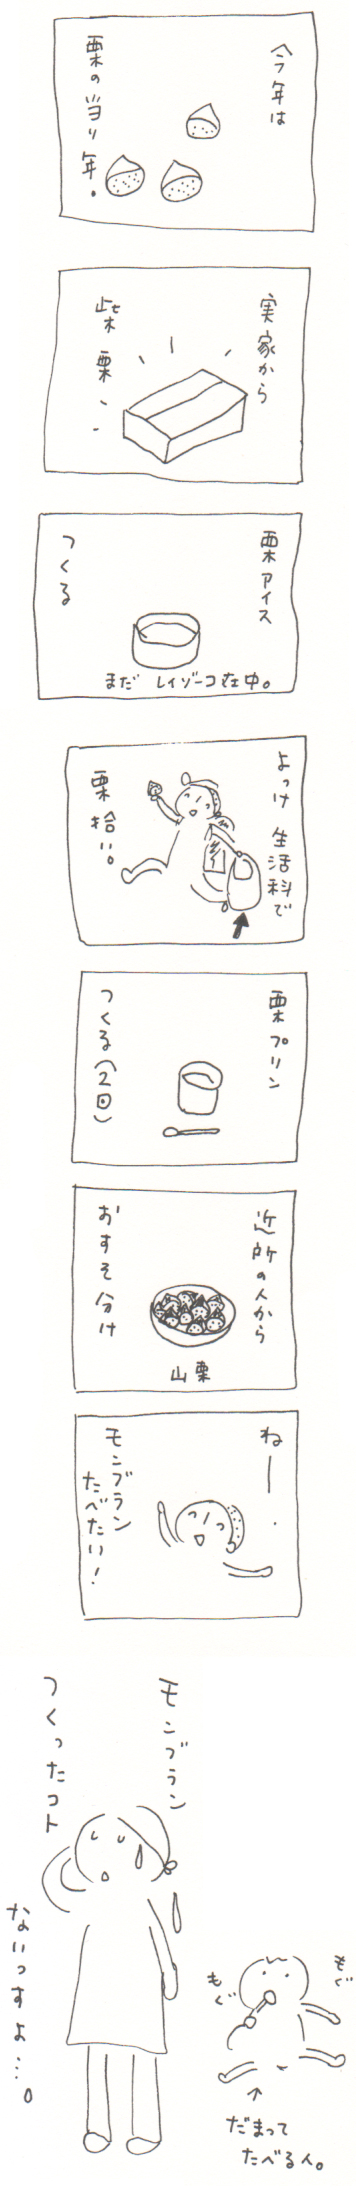 今年は
栗の当り年。
実家から
柴栗
栗アイス
つくる
まだ レイゾーコ在中。
よっけ 生活科で
栗拾い。
栗プリン
つくる(2回)
近所の人から
おすそ分け
山栗
ねー。
モンブラン
たべたい!
モンブラン
つくったコト
ないっすよ…。
もぐ
もぐ
だまって
たべる人。